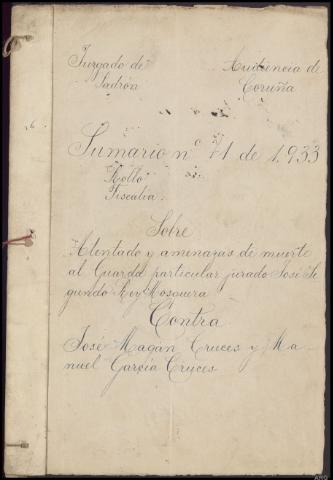 Juzgado de Audiencia de
Padrón Coruña
Sumario nº 71 de 1.933
Rollo
Fiscalia.
Sobre
Atentado y amenazas de muerte
al Guarda particular jurado José Se
gundo Rey Mosquera
Contra
José Magán Cruces y Ma-
nuel García Cruces